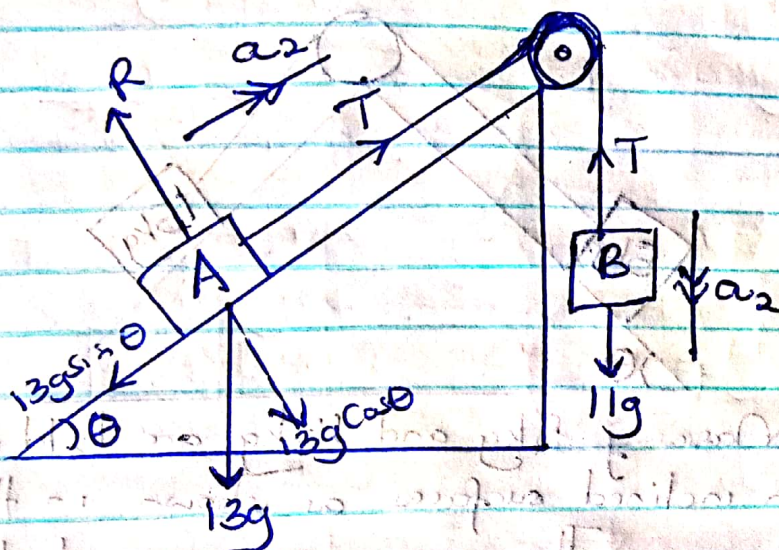 a2
R
T
T
A
B
a2
13g sin θ
θ
13g Cosθ
11g
13g